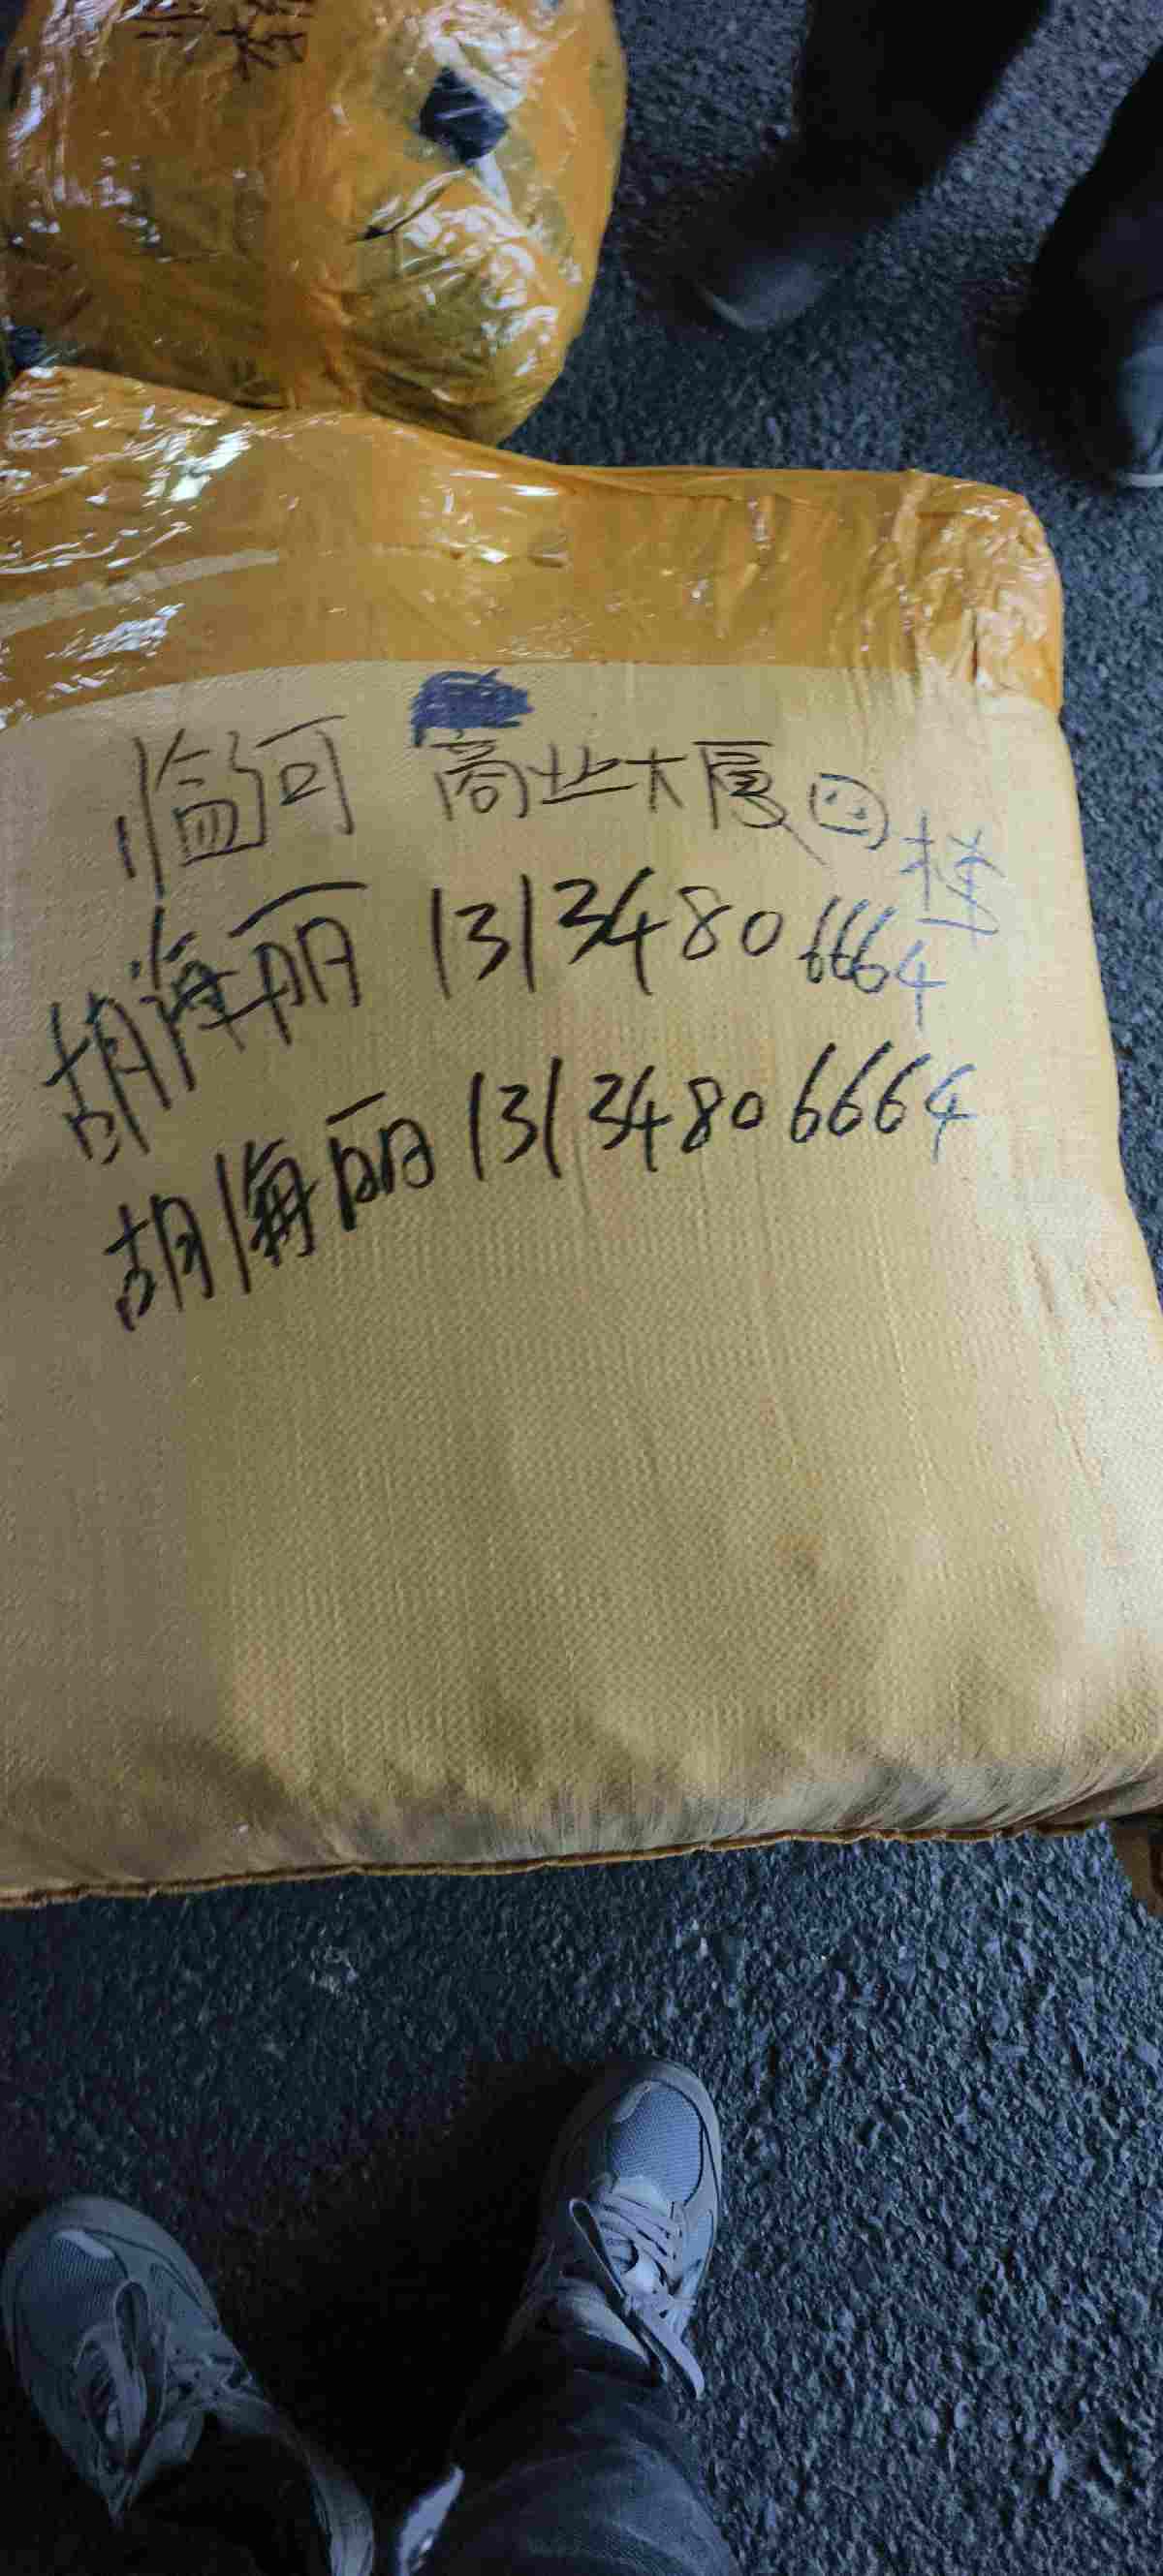 临河 商业大厦 四楼
胡海丽 13134806664
胡海丽 13134806664